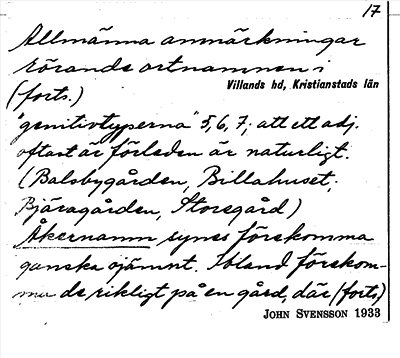 17
Allmänna anmärkningar
rörande ortnamnen i
Villands hd, Kristianstads län
(forts.)
"genitivtyperna" 5, 6, 7; att ett adj.
oftast är förleden är naturligt.
(Balsbygården, Billahuset,
Bjäragården, Storegård)
Åkernamn synes förekomma
ganska ojämnt. Ibland förekom-
ma de rikligt på en gård, där (forts)
JOHN SVENSSON 1933